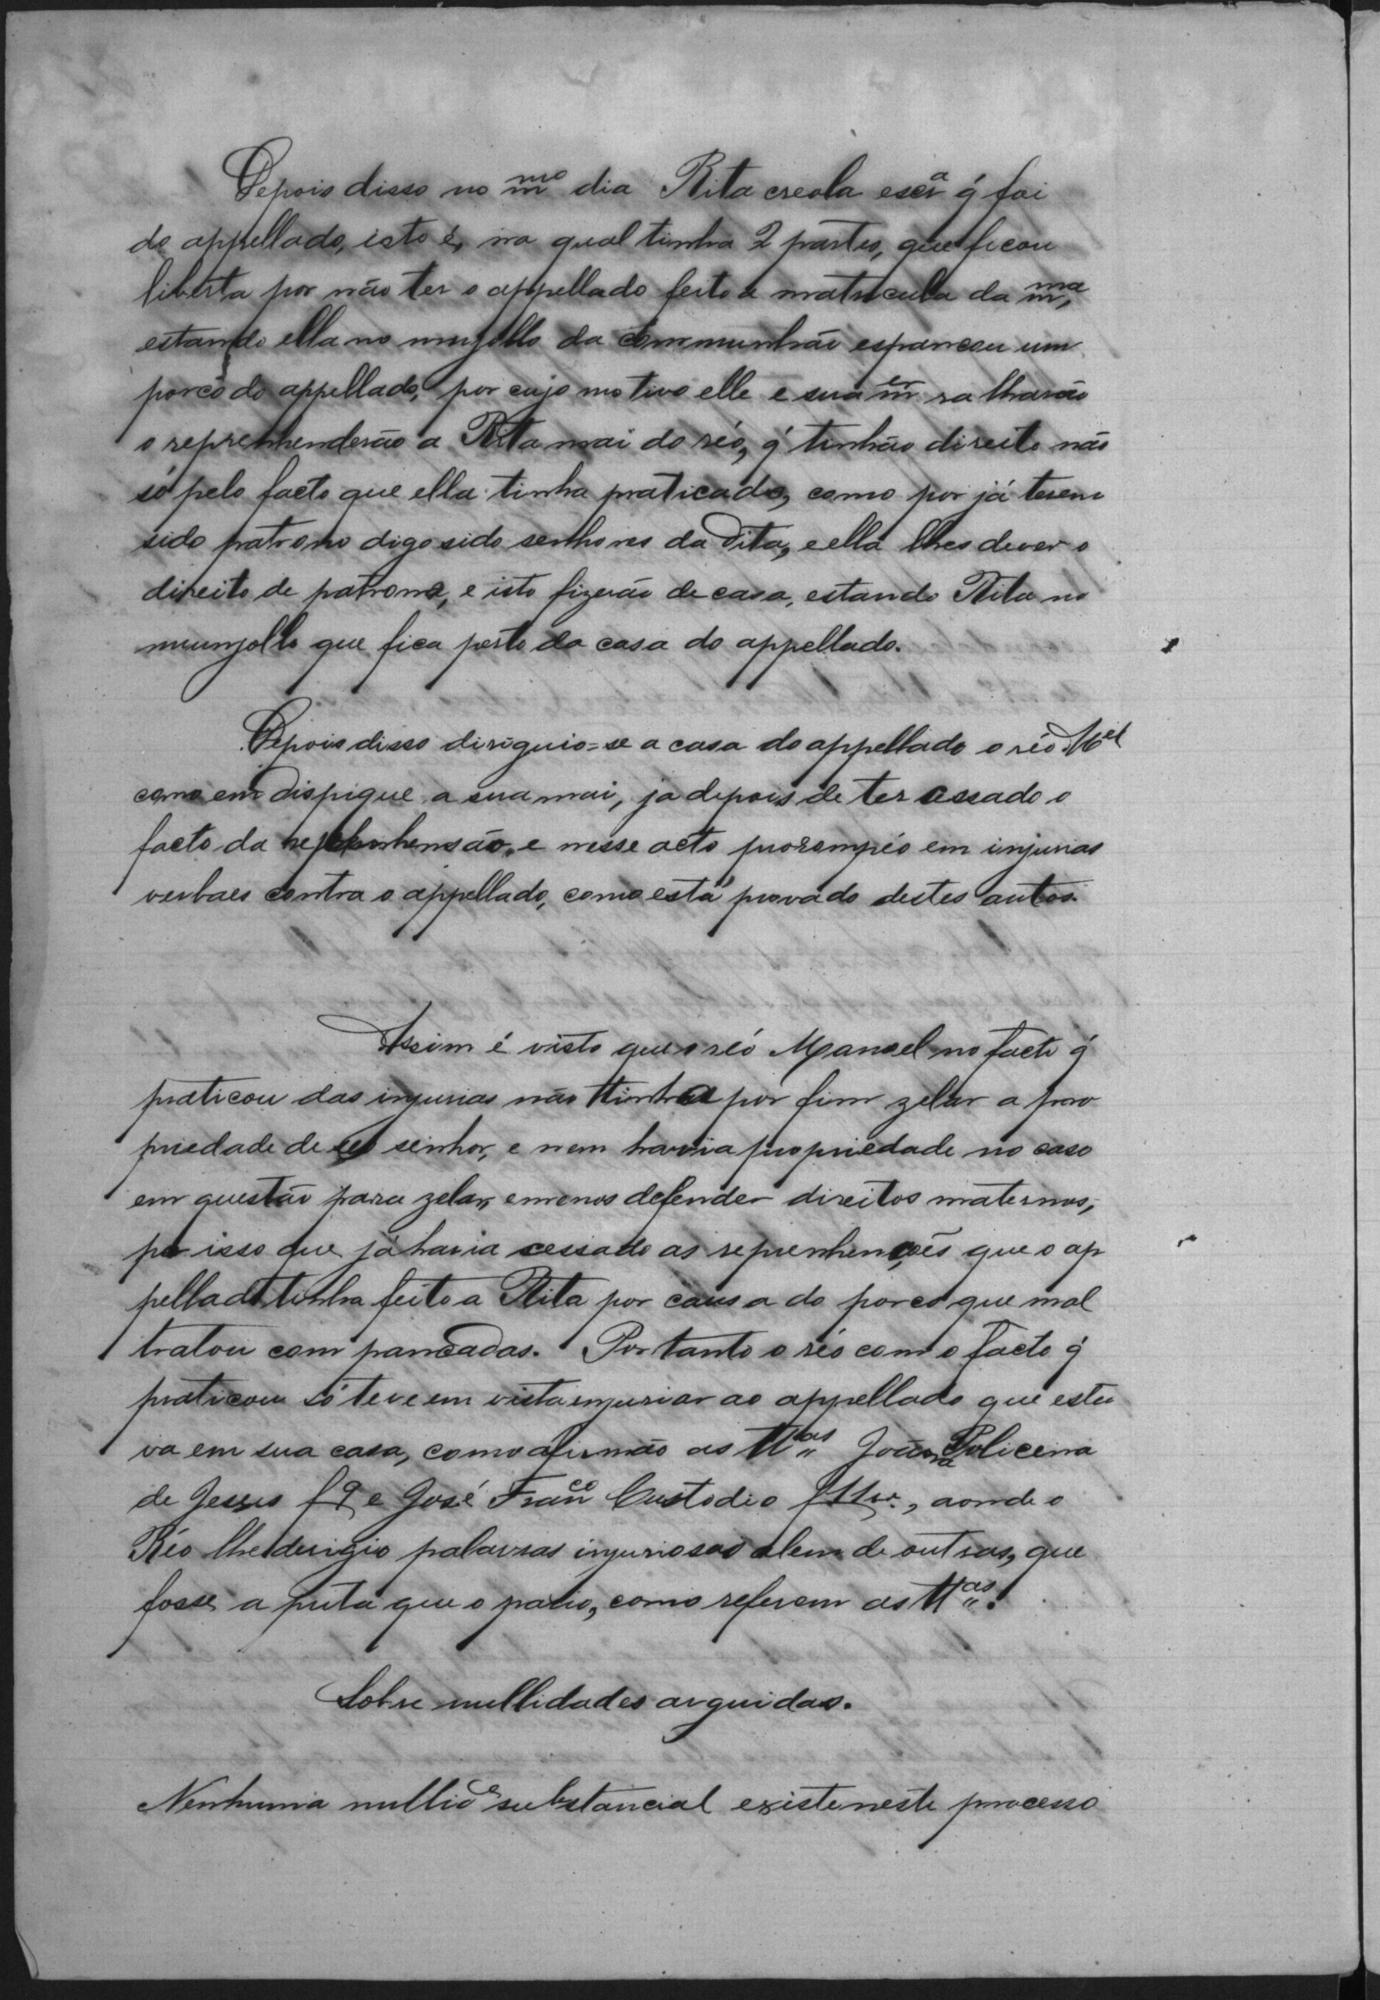 Depois disso no mmo dia Rita creola escra q̃ foi
do appellado, isto é, na qual tinha 2 partes, que ficou
liberta por não ter o appellado feito a matricula da mma,
estando ella no munjollo da communhão espancou um
porco do appellado, por cujo motivo elle e sua mer ralharão
e reprenhenderão a Rita mai do réo, q̃ tinhão direito não
só pelo facto que ella tinha praticado, como por já terem
sido patrono digo sido senhores da dita, e ella lhes dever o
direito de patrono, e isto fizerão de casa, estando Rita no
munjollo que fica perto da casa do appellado.
Depois disso diriguio=se a casa do appellado o réo Mel
como em dispique a sua mai, ja depois de ter cessado o
facto da reprehensão, e nesse acto prorompéo em injurias
verbaes contra o appellado, como está provado destes autos.
Assim é visto que o réo Manoel no facto q̃
praticou das injurias não tinha por fim zelar a pro
priedade de seo senhor, e nem havia propriedade no caso
em questão para zelar, e menos defender direitos maternos,
por isso que já havia cessado as reprenhenções que o ap
pellado tinha feito a Rita por causa do porco que mal
tratou com pancadas. Portanto o réo com o facto q̃
praticou só teve em vista enjuriar ao appellado que esta
va em sua casa, como afirmão as ttas Joanna Policena
de Jesus f 9 e José Franco Custodio f 11 v., aonde o
Réo lhe derigio palavras injuriosas alem de outras, que
fosse a puta que o pario, como referem as ttas.
Sobre nullidades arguidas.
Nenhuma nullide substancial existe neste processo